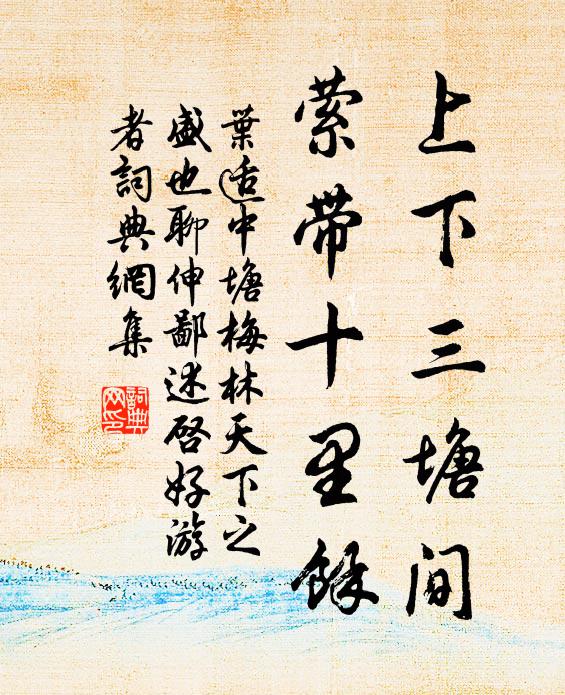 上下三塘间
萦带十里馀
葉适中塘梅林天下之
盛也聊伸鄙述啓好游
者詞典網集
詞典
网印